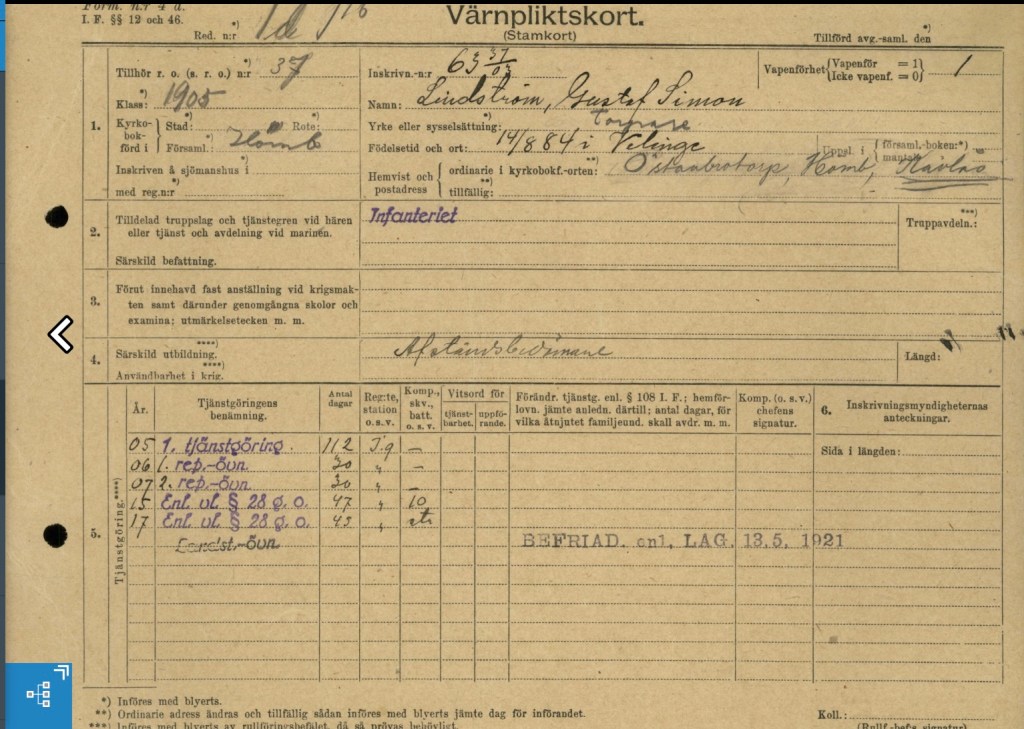 Form. n:r 4 a.
I. F. §§ 12 och 46.
Värnpliktskort.
(Stamkort)
Red. n:r *)
Tillförd avg.-saml. den *)
1.
Tillhör r. o. (s. r. o.) n:r *) 37
Inskrivn.-n:r 63 37/03
Vapenförhet *) {Vapenför = 1 Icke vapenf. = 0} 1
Klass: *) 1905
Namn: Lindström, Gustaf Simon
Kyrkobokförd i { Stad: *) Rote:
Yrke eller sysselsättning: Torpare
Församl.: *) Hömb
Födelsetid och ort: 14/8 84 i Velinge
Uppsl. i { församl.-boken: *)
Inskriven å sjömanshus i *)
med reg.n:r *)
Hemvist och postadress { ordinarie i kyrkobokf.-orten: **) Hömb,
tillfällig: **)
2.
Tilldelad truppslag och tjänstegren vid hären
eller tjänst och avdelning vid marinen.
Infanteriet
Truppavdeln.: ***)
Särskild befattning.
3.
Förut innehavd fast anställning vid krigsmak-
ten samt därunder genomgångna skolor och
examina; utmärkelsetecken m. m.
4.
Särskild utbildning. ****)
Afståndsbedömare
Användbarhet i krig. ****)
Längd:
5.
Tjänstgöring. ****)
År.
Tjänstgöringens benämning.
Antal dagar
Reg:te, station o.s.v.
Komp., skv., batt. o. s. v.
Vitsord för
tjänst-barhet.
uppfö-rande.
Förändr. tjänstg. enl. § 108 I. F.; hemför-
lovn. jämte anledn. därtill; antal dagar, för
vilka åtnjutet familjeund. skall avdr. m. m.
Komp. (o. s. v.) chefens signatur.
6.
Inskrivningsmyndigheternas anteckningar.
Sida i längden:
05 1. tjänstgöring. 112 I.9 —
06 1. rep.-övn. 30 " —
07 2. rep.-övn. 30 " —
15 Enl. vl. § 28 g. o. 47 " 10
17 Enl. vl. § 28 g. o. 43 "
Landst.-övn
BEFRIAD. enl. LAG. 13.5. 1921
*) Införes med blyerts.
**) Ordinarie adress ändras och tillfällig sådan införes med blyerts jämte dag för införandet.
***) Införes med blyerts av rullföringsbefälet, då så prövas behövligt.
Koll.:
(Rullf.-befs signatur)